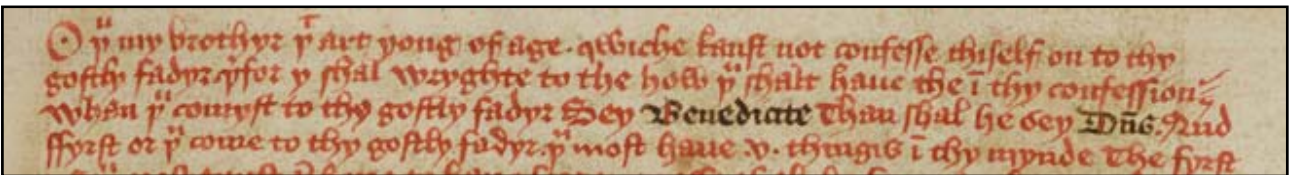 O þͧ my brothyr þͭ art yong of age . qwiche kanst not confesse thiself on to thy
gostly fadyr . þfor y schal wryghte to the how þͧ schalt haue the ī thy confession
whan þͧ comyst to thy gostly fadyr Sey Benedicite Than shal he sey Dn̄s . And
ffyrst or þͧ come to thy gostly fadyr . þͧ most haue .v. thingis ī thy mynde The fyrst